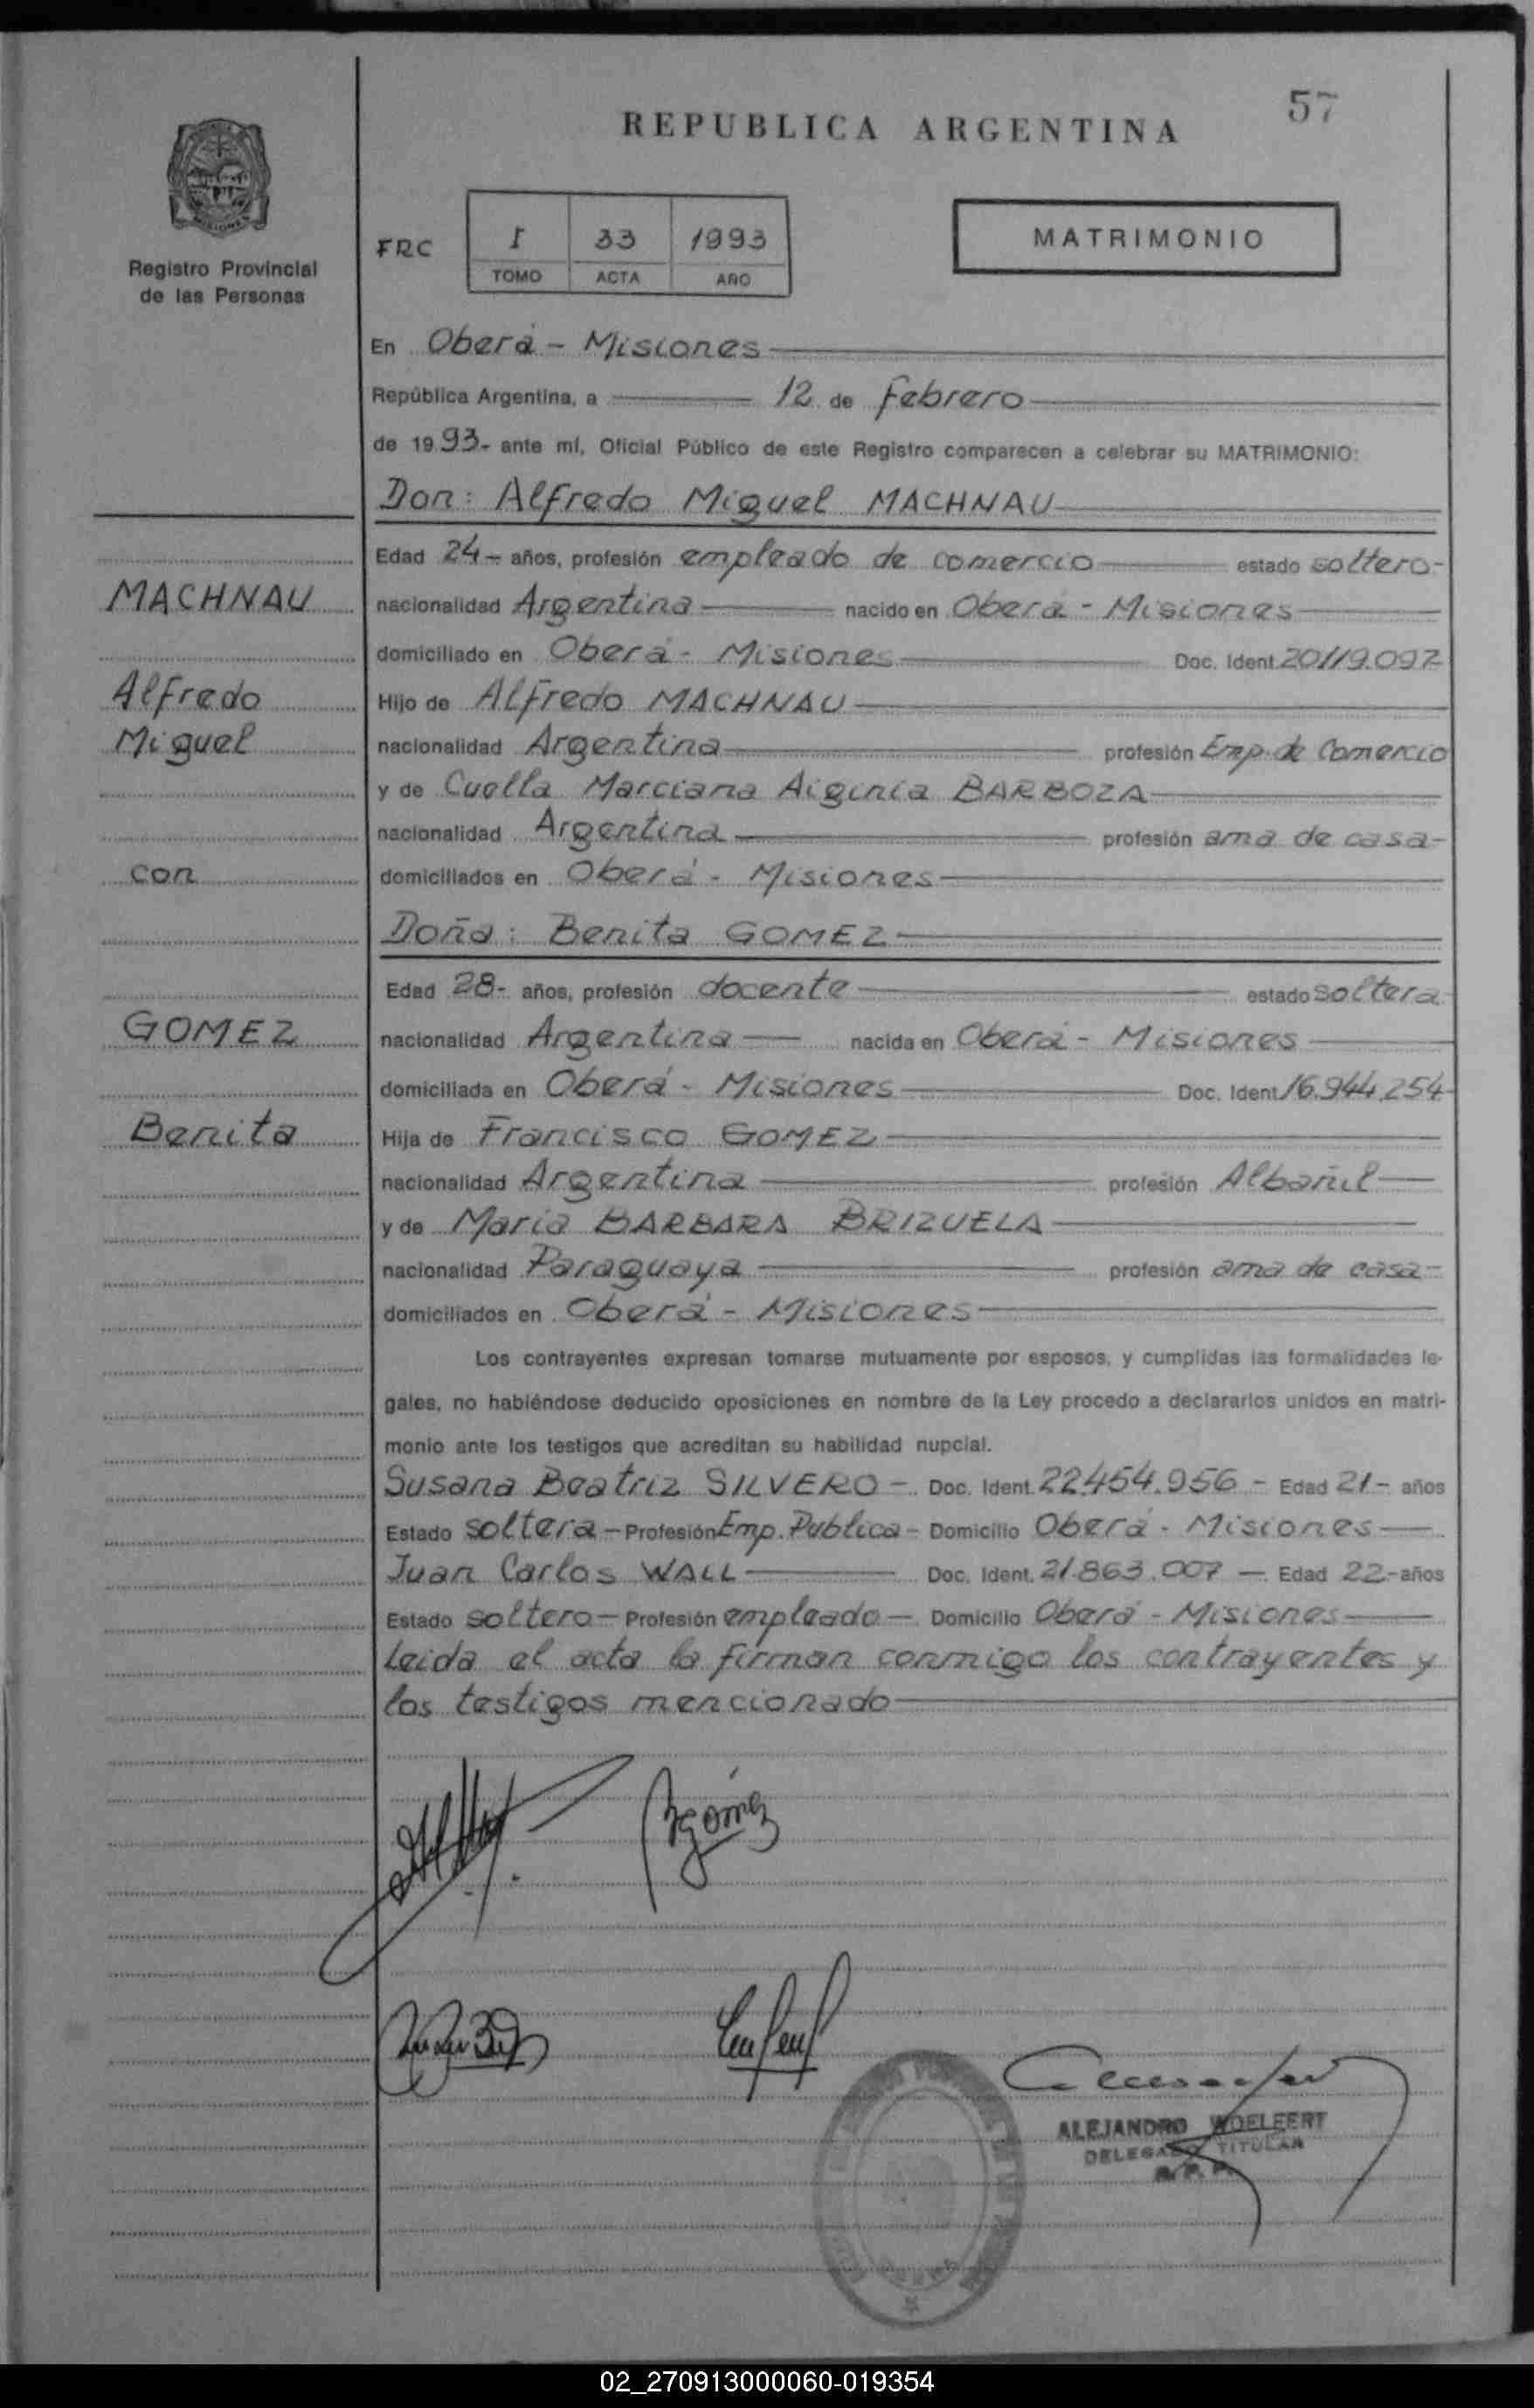 57
REPUBLICA ARGENTINA
MISIONES
Registro Provincial
de las Personas
FRC
I 33 1993
TOMO ACTA AÑO
MATRIMONIO
En Oberá - Misiones
República Argentina, a 12 de Febrero
de 1993- ante mí, Oficial Público de este Registro comparecen a celebrar su MATRIMONIO:
Don: Alfredo Miguel MACHNAU
Edad 24- años, profesión empleado de comercio estado soltero-
MACHNAU
nacionalidad Argentina nacido en Oberá - Misiones
domiciliado en Oberá - Misiones Doc. Ident. 20119.092
Alfredo
Hijo de Alfredo MACHNAU
Miguel
nacionalidad Argentina profesión Emp. de Comercio
y de Cuella Marciana BARBOZA
nacionalidad Argentina profesión ama de casa-
con
domiciliados en Oberá - Misiones
Doña: Benita GOMEZ
Edad 28- años, profesión docente estado soltera
GOMEZ
nacionalidad Argentina nacida en Oberá - Misiones
domiciliada en Oberá - Misiones Doc. Ident. 16.944.254
Benita
Hija de Francisco GOMEZ
nacionalidad Argentina profesión Albañil
y de Maria BARBARA BRIZUELA
nacionalidad Paraguaya profesión ama de casa-
domiciliados en Oberá - Misiones
Los contrayentes expresan tomarse mutuamente por esposos, y cumplidas las formalidades le-
gales, no habiéndose deducido oposiciones en nombre de la Ley procedo a declararlos unidos en matri-
monio ante los testigos que acreditan su habilidad nupcial.
Susana Beatriz SILVERO - Doc. Ident. 22.454.956 - Edad 21- años
Estado soltera - Profesión Emp. Publica - Domicilio Oberá - Misiones
Juan Carlos WALL Doc. Ident. 21.863.007 - Edad 22- años
Estado soltero - Profesión empleado - Domicilio Oberá - Misiones
Leida el acta la firman conmigo los contrayentes y
los testigos mencionado
BGómez
ALEJANDRO WOELFERT
DELEGADO TITULAR
R. P. P.
02_270913000060-019354